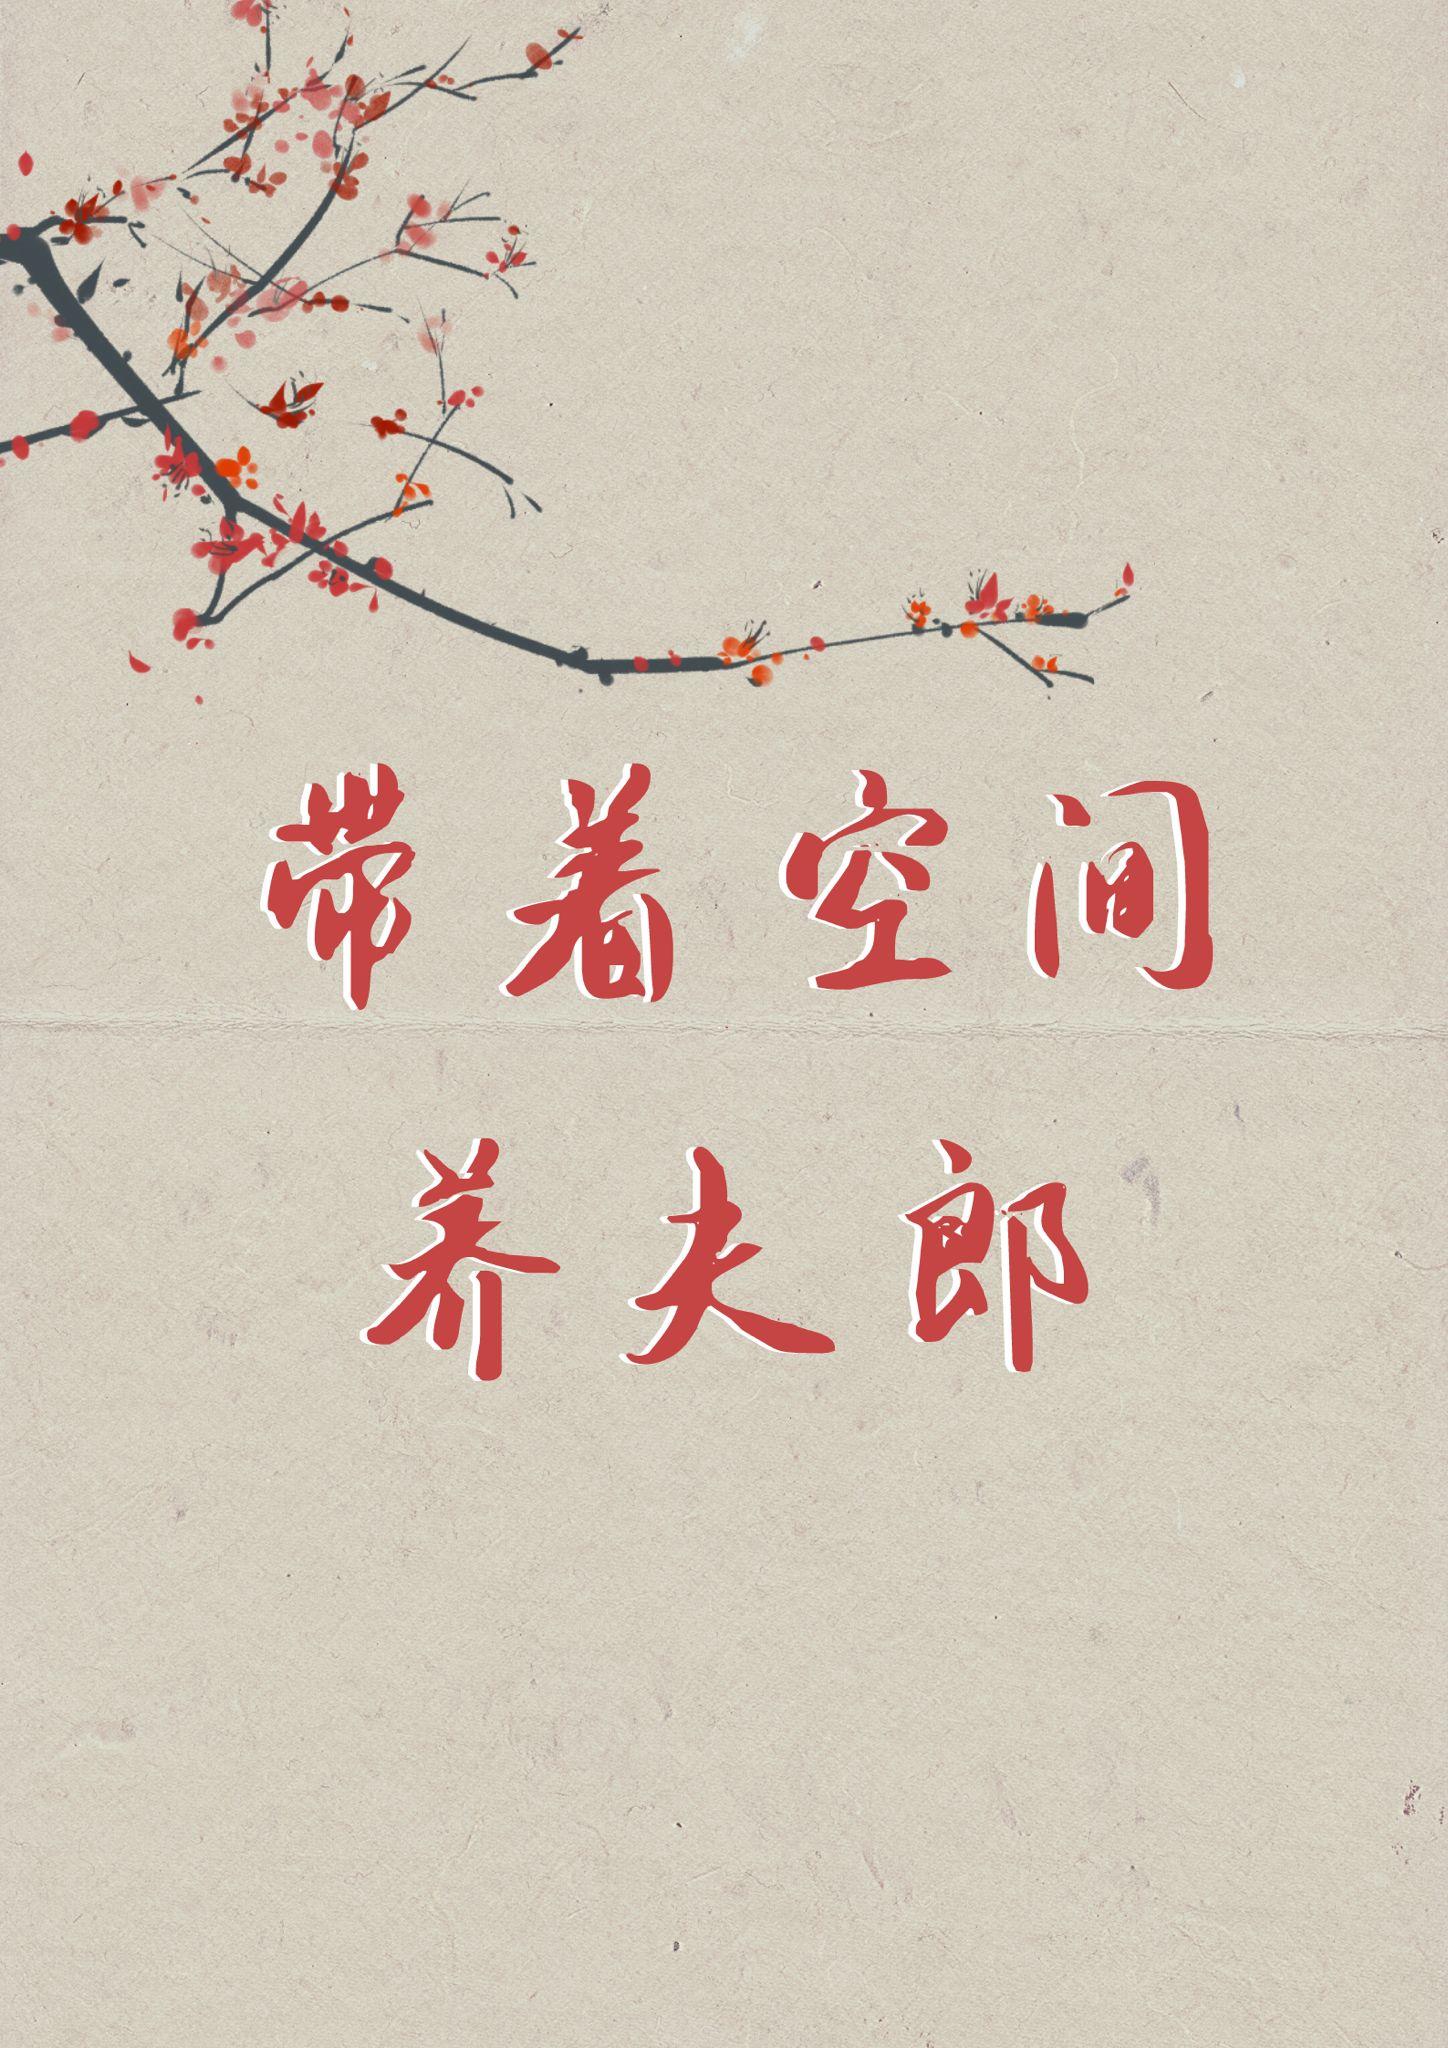 带着空间
养夫郎